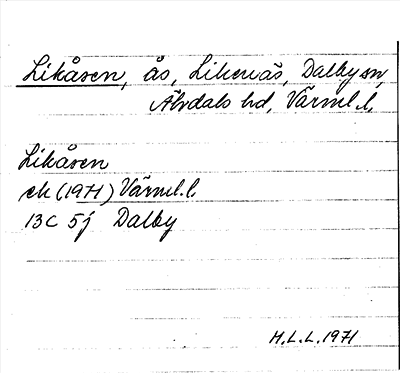 Likåsen, ås, Likenäs, Dalby sn,
Älvdals hd, Värml. l.
Likåsen
ek (1971) Värml. l.
13C 5j Dalby
H.L.L. 1971